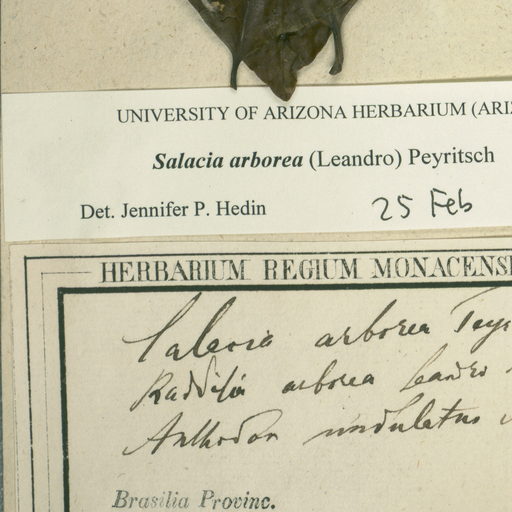 UNIVERSITY OF ARIZONA HERBARIUM (ARIZ
Salacia arborea (Leandro) Peyritsch
Det. Jennifer P. Hedin 25 Feb
HERBARIUM REGIUM MONACENS
Salacia arborea Peyr
Raddisia arborea Leandro
Anthodon undulatus
Brasilia Provinc.